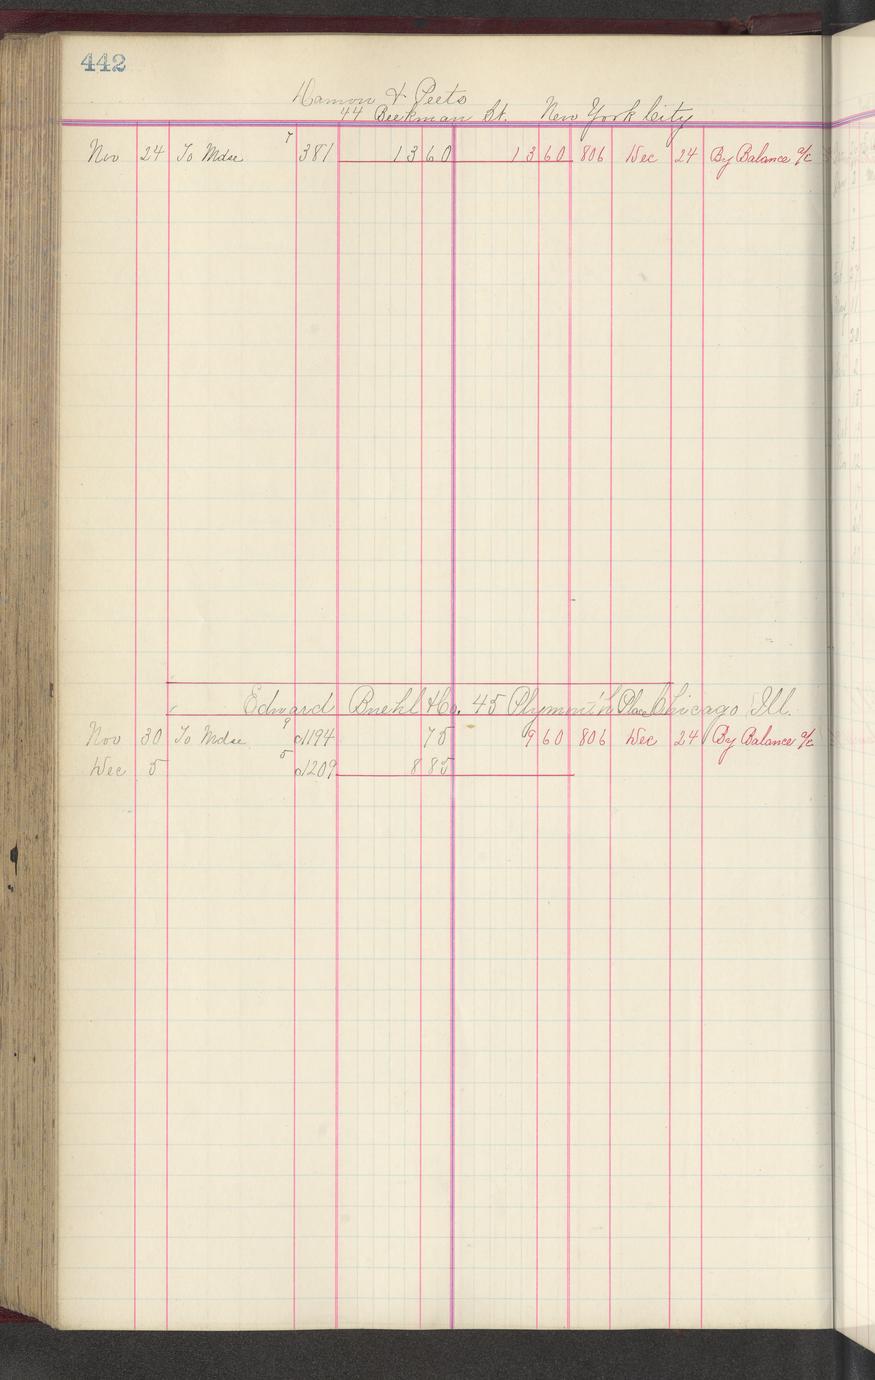 442
Hamon & Peets
44 Beekman St. New York City
Nov 24 To Mdse 7 381 13 60 13 60 806 Dec 24 By Balance a/c
Edward Buehl & Co. 45 Plymouth Place Chicago Ill.
Nov 30 To Mdse 9 d1194 75 9 60 806 Dec 24 By Balance a/c
Dec 5 5 d1209 8 85